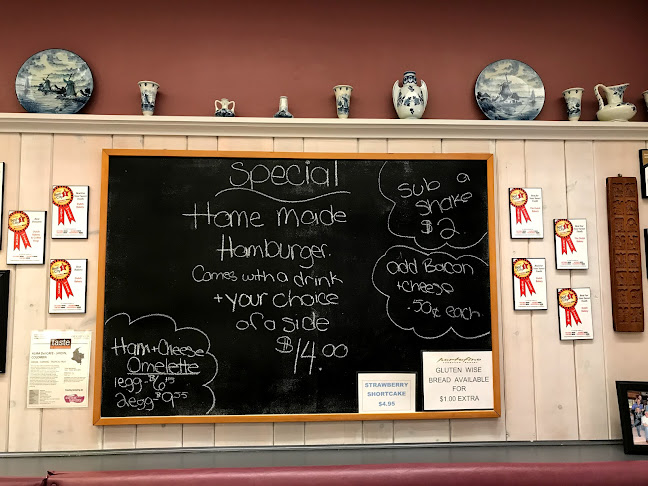 Special
Home made
Hamburger.
Comes with a drink
+ your choice
of a side
$14.00
sub a
shake
$2
add Bacon
+ cheese
.50¢ each
Ham + Cheese
Omelette
1egg - $6
2egg $9.55
STRAWBERRY
SHORTCAKE
$4.95
GLUTEN WISE
BREAD AVAILABLE
FOR
$1.00 EXTRA
taste